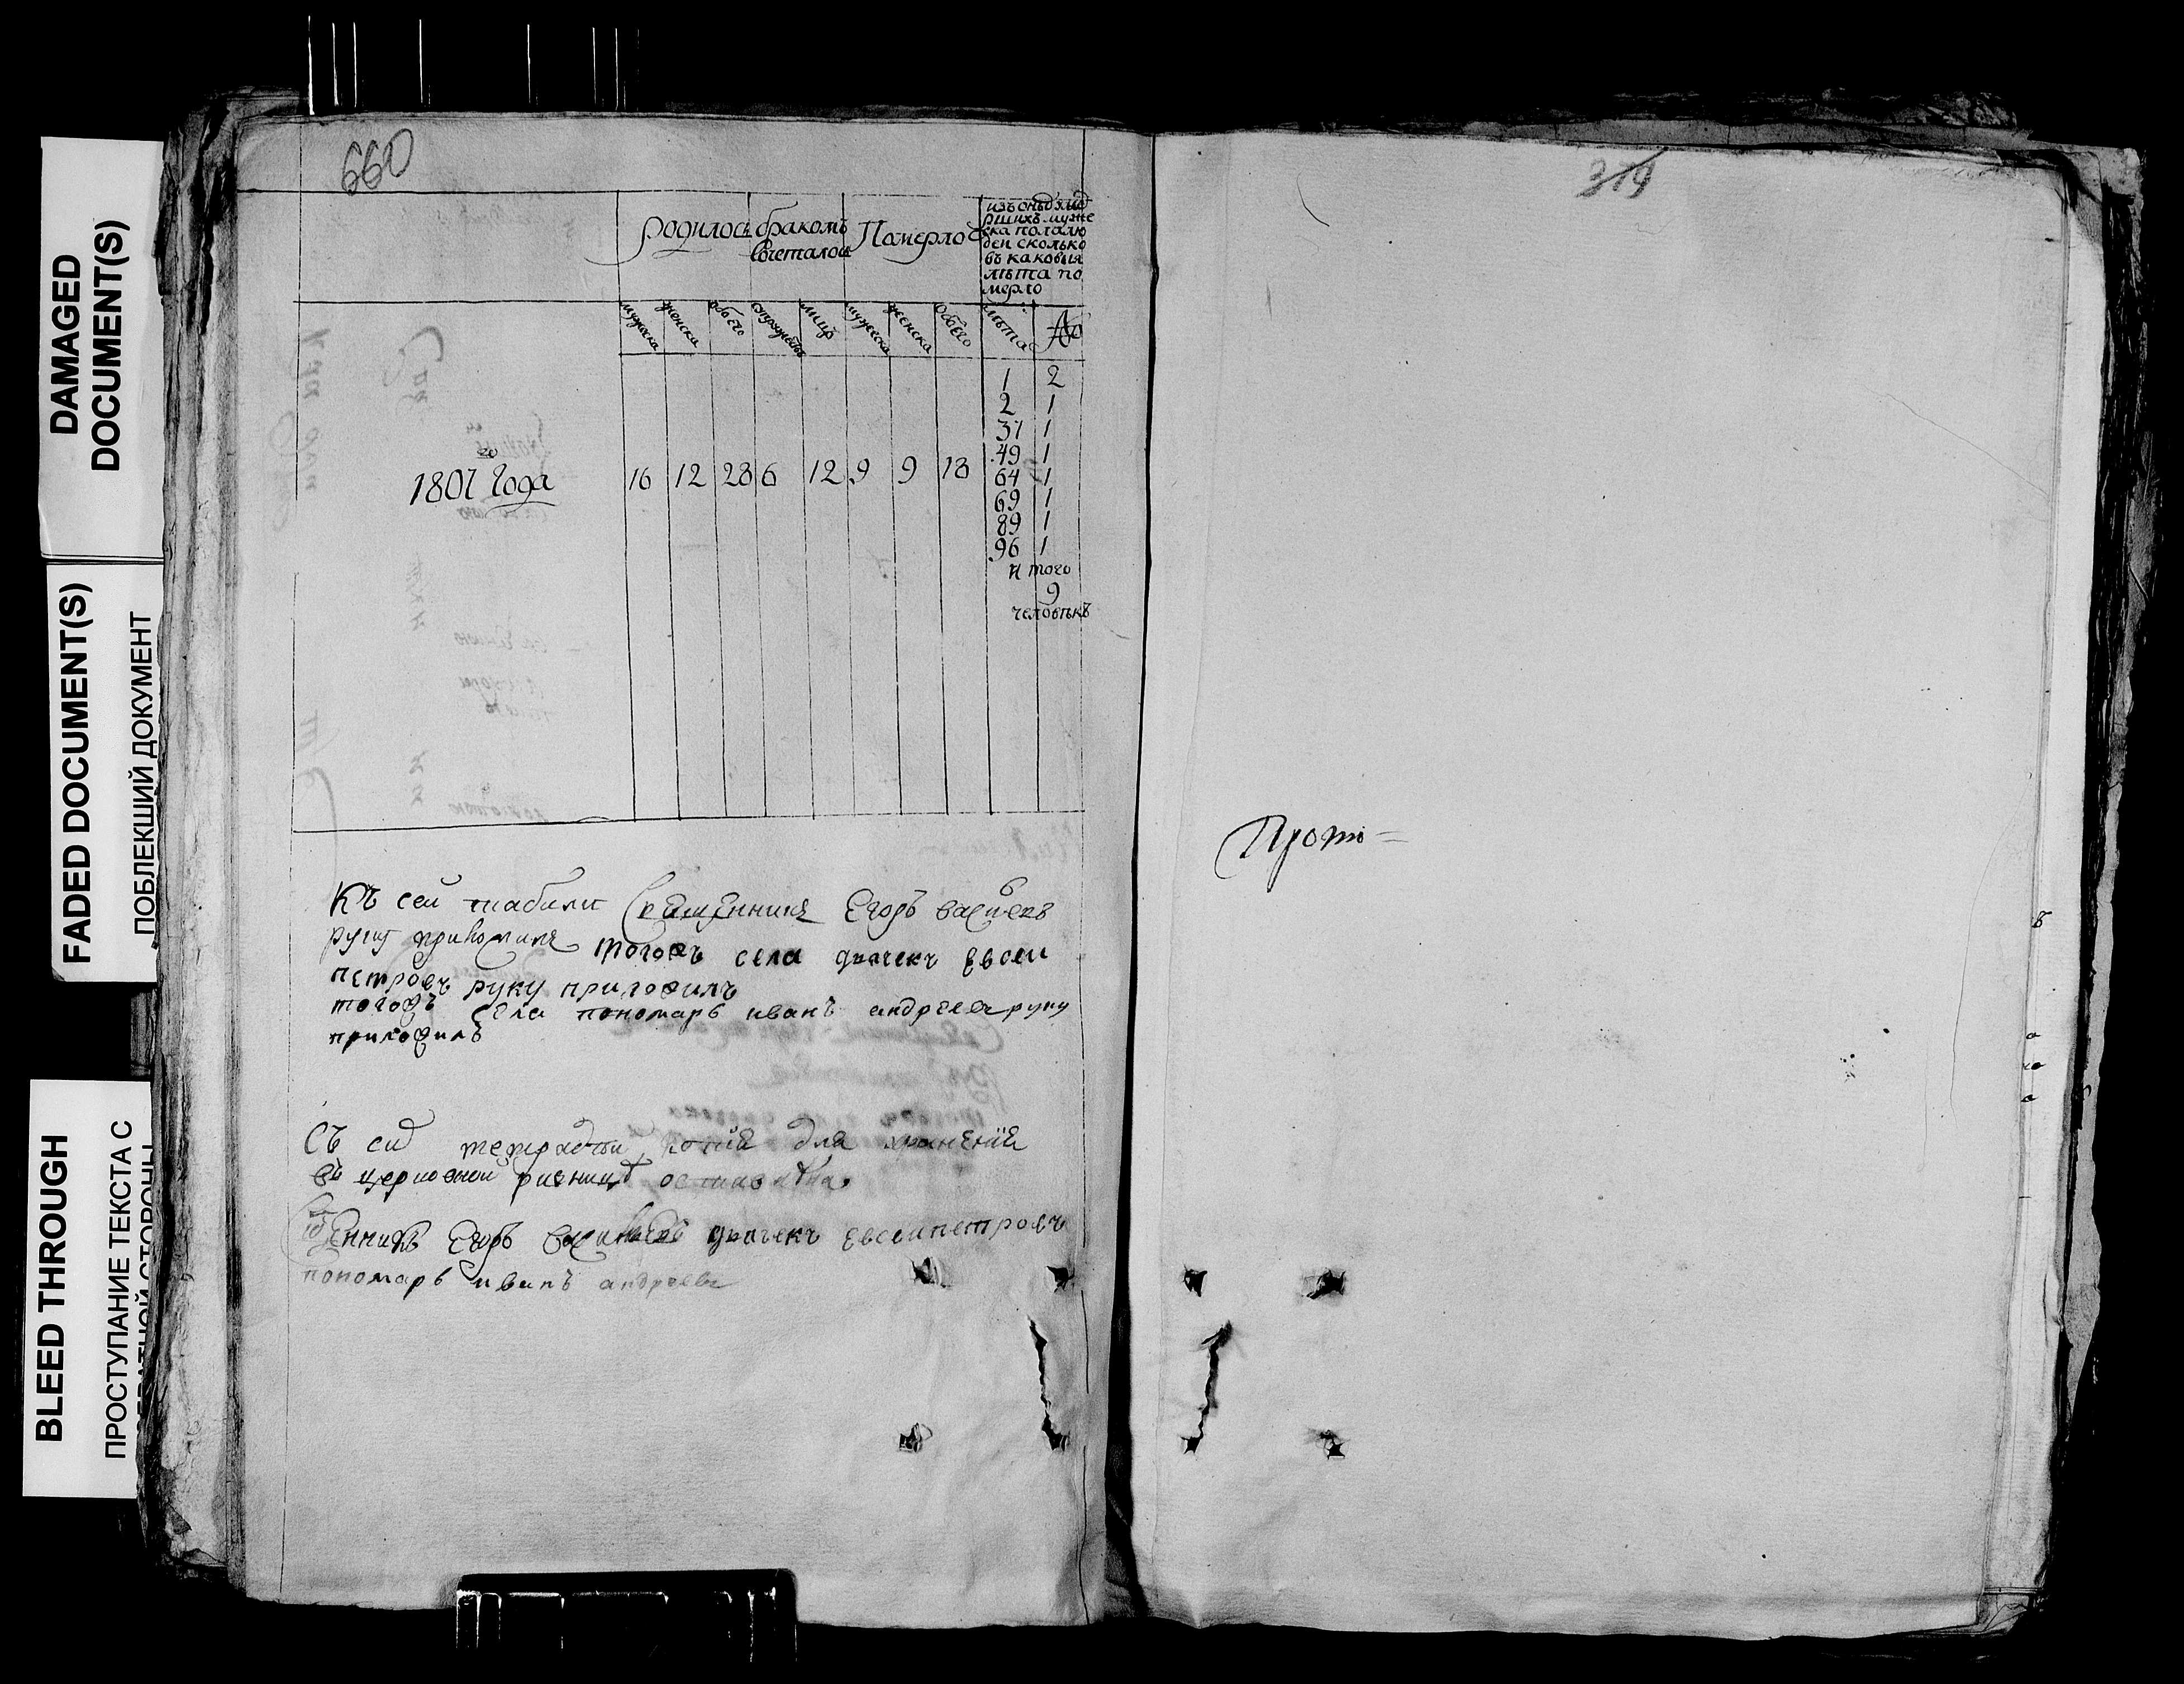 DAMAGED
DOCUMENT(S)
FADED DOCUMENT(S)
ПОБЛЕКШИЙ ДОКУМЕНТ
BLEED THROUGH
ПРОСТУПАНИЕ ТЕКСТА С
ОБРАТНОЙ СТОРОНЫ
660
родилось
бракомъ
сочеталось
Померло
изъ онъ
рших муже
ска пола лю
деи сколько
въ каковыя
лѣта по
мерло
мужеска женска обоего супружествъ лицъ мужеска женска обоего лѣта №
1 2
2 1
37 1
49 1
1801 го года 16 12 28 6 12 9 9 18 64 1
69 1
89 1
96 1
И того
9
человѣкъ
Къ сеи табели Священникъ Егоръ васильевъ
руку приложилъ тогожъ села дьячекъ Евсеи
петровъ руку приложилъ
тогожъ села пономарь иванъ андреевъ руку
приложилъ
Съ сей тетради копия для хранения
въ церковной ризницѣ оставлена
Священникъ Егоръ васильевъ дьячекъ евсеи петровъ
пономарь иванъ андреевъ
319
Прото=